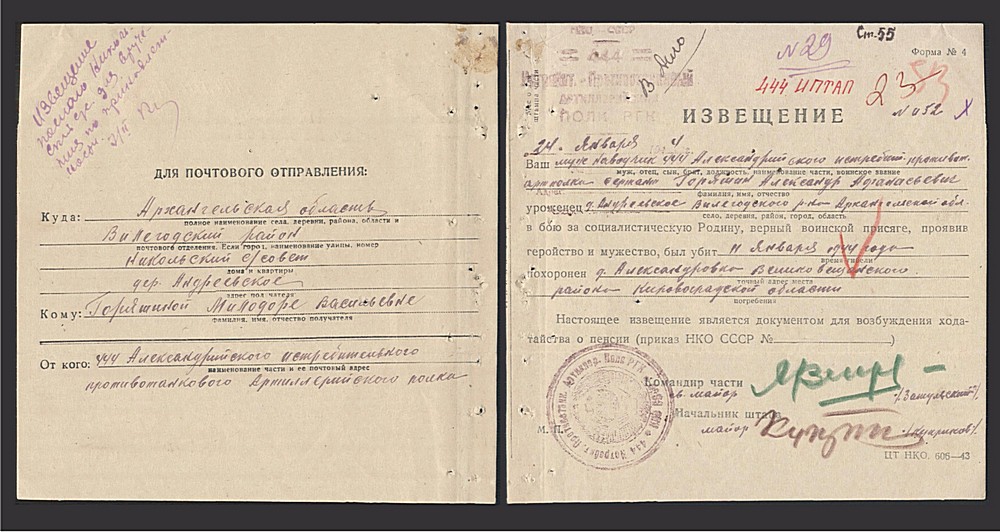 Извещение
послано Николь-
ск. с/с. для вруче-
ния по принадлеж-
ности.
ДЛЯ ПОЧТОВОГО ОТПРАВЛЕНИЯ:
Куда: Архангельская область
полное наименование села, деревни, района, области и
Вилегодский район
почтового отделения. Если город, наименование улицы, номер
Никольский с/совет
дома и квартиры
дер. Андреевское
адрес получателя
Кому: Горяшиной Милодоре Васильевне
фамилия, имя, отчество получателя
От кого: 444 Александрийского истребительного
наименование части и ее почтовый адрес
противотанкового Артиллерийского полка
НКО—СССР
444
АРТИЛЛЕРИЙСКИЙ
ПОЛК РГК
В дело
№29
Ст. 55
Форма № 4
444 ИПТАП
23
53
ИЗВЕЩЕНИЕ
№ 1152 х
24 Января 1944
Ваш муж наводчик 444 Александрийского истребит. противот.
муж, отец, сын, брат, должность, наименование части, воинское звание
артполка сержант Горяшин Александр Афанасьевич
фамилия, имя, отчество
уроженец д. Андреевское Вилегодского р-на Архангельской обл.
село, деревня, район, город, область
в бою за социалистическую Родину, верный воинской присяге, проявив
геройство и мужество, был убит 11 Января 1944 года
время гибели
похоронен д. Александровка Великовещанского
точный адрес места
района Кировоградской области
погребения
Настоящее извещение является документом для возбуждения хода-
тайства о пенсии (приказ НКО СССР № )
Командир части
гв. майор /Зашульский/
Начальник штаба
майор /Куприков/
М. П.
ЦТ НКО. 605—43